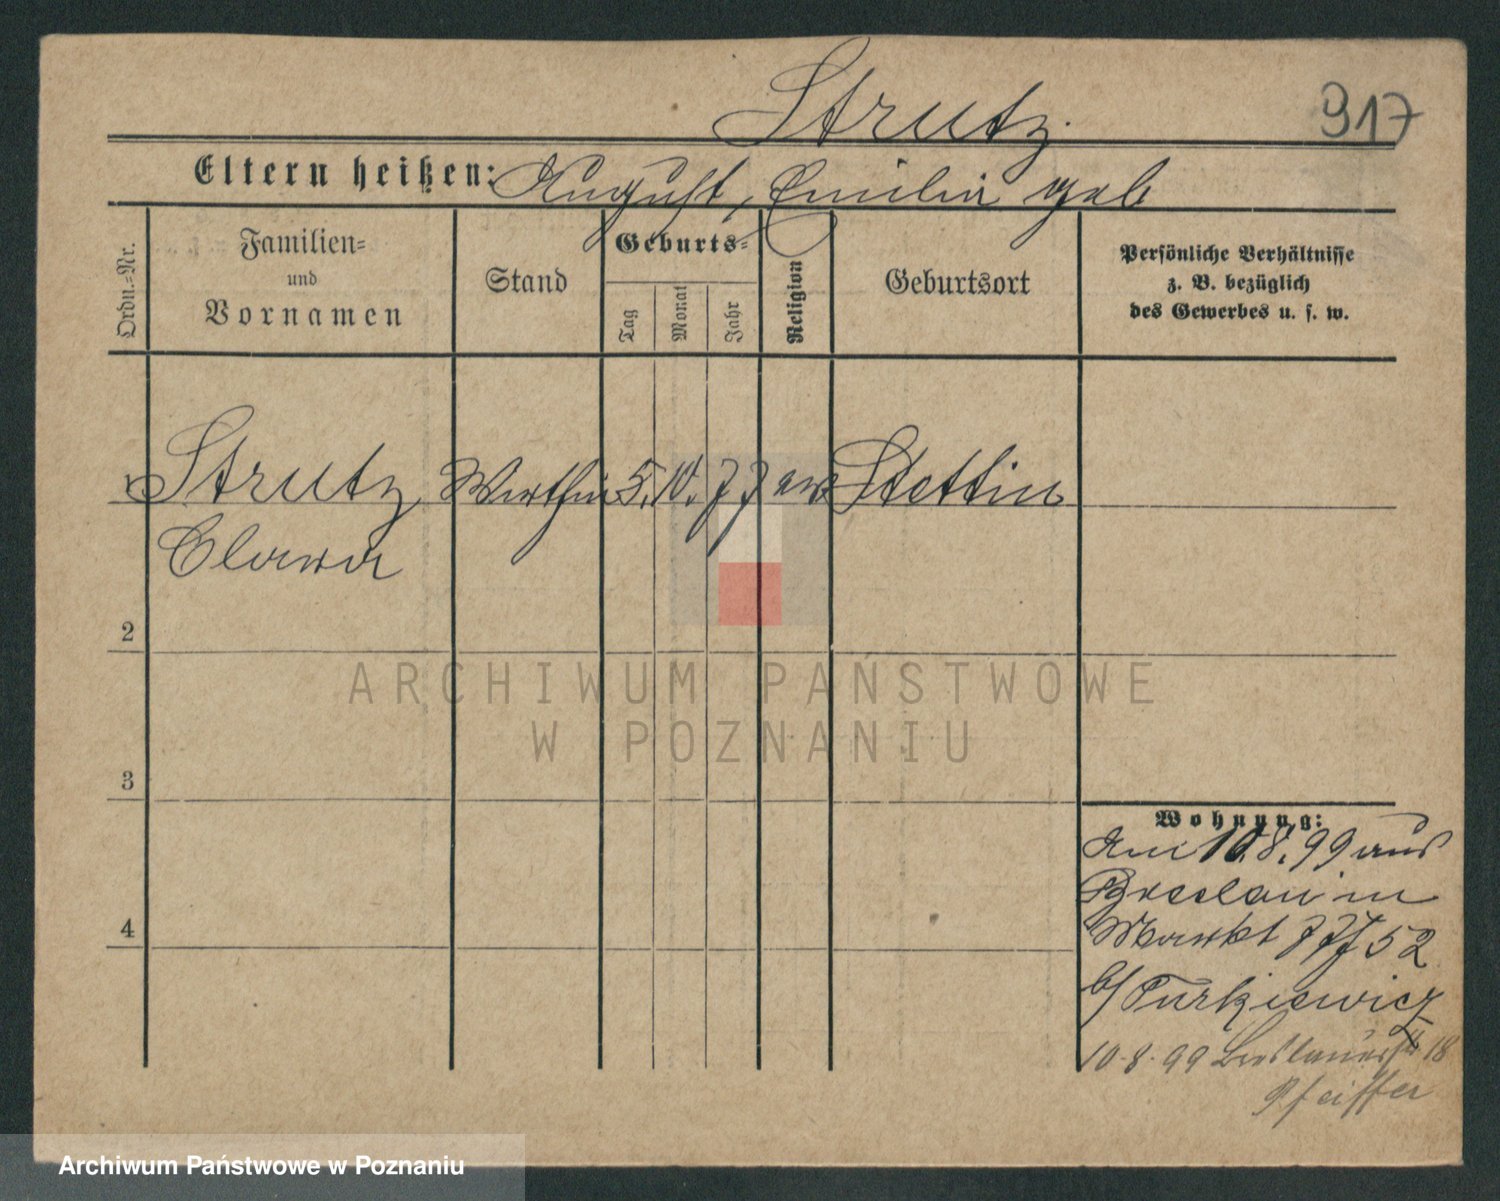 Strutz.
917
Eltern heißen: August, Emilia geb
Ordn.=Nr.
Familien=
und
Vornamen
Stand
Geburts=
Tag
Monat
Jahr
Religion
Geburtsort
Persönliche Verhältnisse
z. B. bezüglich
des Gewerbes u. s. w.
1 Strutz Wirthin 5. 10. 77 ev Stettin
Clara
2
3
4
Wohnung:
Am 10.8.99 aus
Breslau in
Markt 52
b/ Turkiewicz
10.8.99 Breslauerstr 18
Pfeiffer
ARCHIWUM PAŃSTWOWE
W POZNANIU
Archiwum Państwowe w Poznaniu